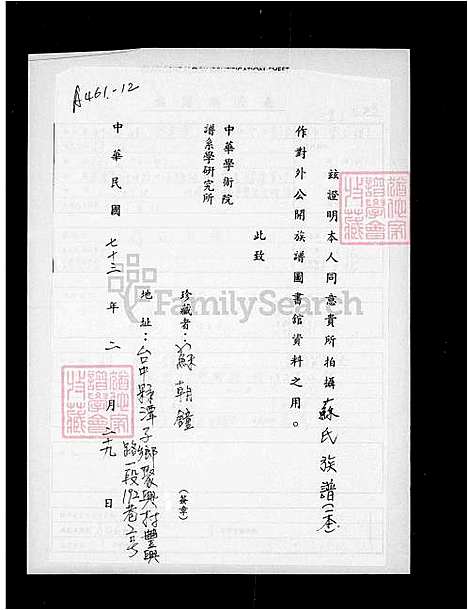 A461-12
茲證明本人同意貴所拍攝蘇氏族譜(一本)
作對外公開族譜圖書館資料之用。
此致
中華學術院
譜系學研究所
珍藏者:蘇朝鐘(簽章)
地址:台中縣潭子鄉聚興村豐興
路一段192巷2号
中華民國七十三年二月二十九日
FamilySearch
譜學會